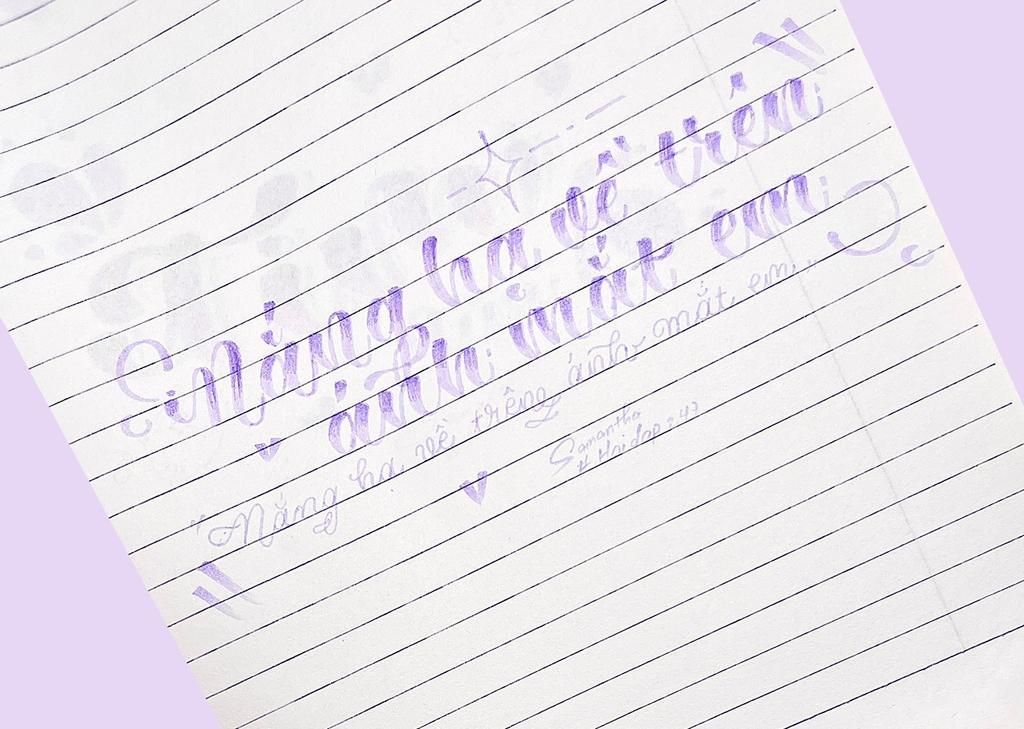 Nắng hạ về trên
ánh mắt em
"Nắng hạ về trêng ánh mắt em"
Samantha